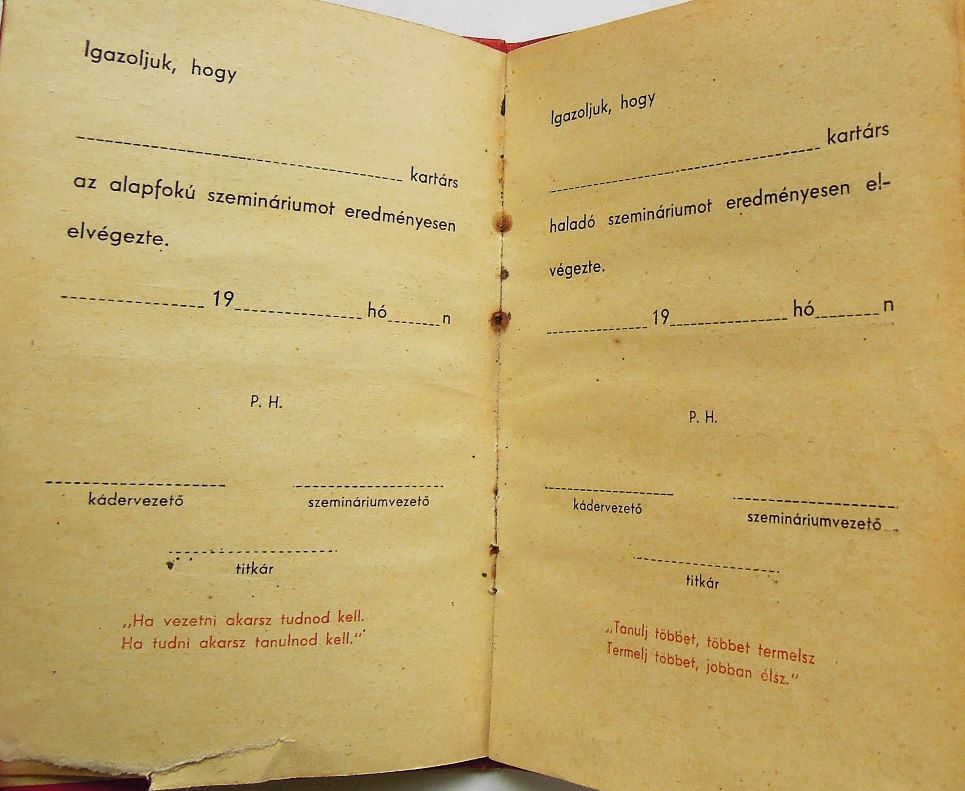 Igazoljuk, hogy
kartárs
az alapfokú szemináriumot eredményesen
elvégezte.
19 hó n
P. H.
kádervezető szemináriumvezető
titkár
„Ha vezetni akarsz tudnod kell.
Ha tudni akarsz tanulnod kell.“
Igazoljuk, hogy
kartárs
haladó szemináriumot eredményesen el-
végezte.
19 hó n
P. H.
kádervezető szemináriumvezető
titkár
„Tanulj többet, többet termelsz
Termelj többet, jobban élsz.“